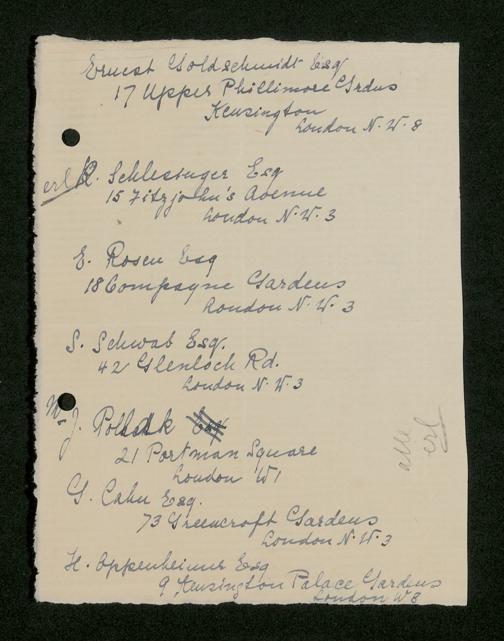 Ernest Goldschmidt Esq
17 Upper Phillimore Grdns
Kensington
London N.W. 8
erl R. Schlesinger Esq
15 Fitzjohn's Avenue
London N.W. 3
E. Rosen Esq
18 Compayne Gardens
London N.W. 3
S. Schwab Esq.
42 Glenloch Rd.
London N.W. 3
Mr J. Pollak
21 Portman Square
London W1
G. Cahn Esq.
73 Greencroft Gardens
London N.W. 3
H. Oppenheimer Esq
9 Kensington Palace Gardens
London W8
alle
erl